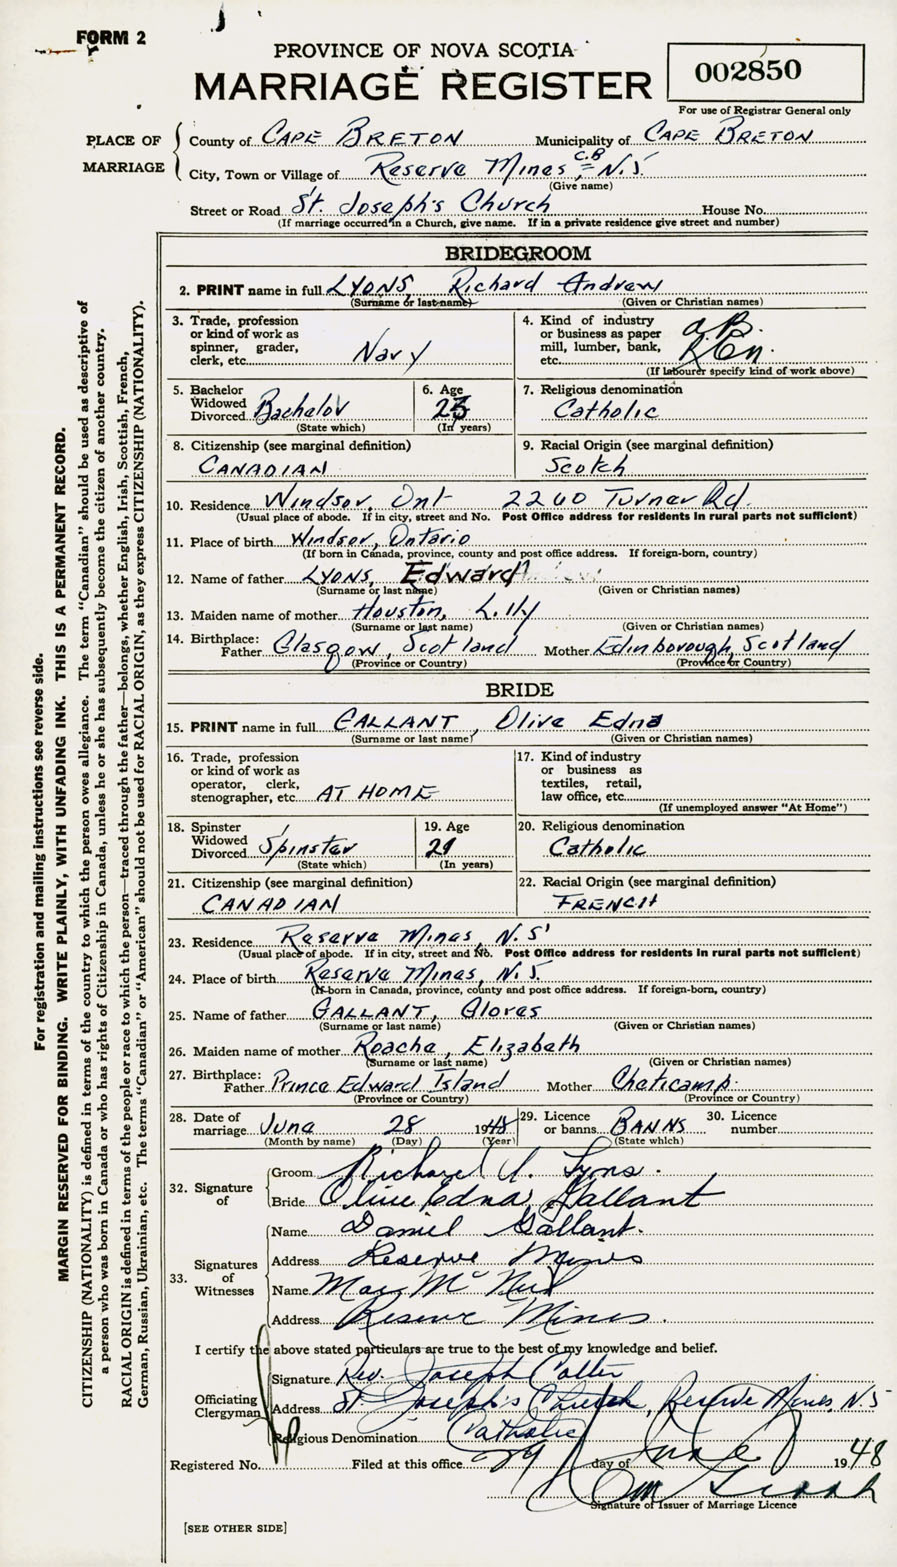 FORM 2
PROVINCE OF NOVA SCOTIA
MARRIAGE REGISTER
002850
For use of Registrar General only
PLACE OF MARRIAGE
County of CAPE BRETON Municipality of CAPE BRETON
City, Town or Village of Reserve Mines, C.B. N.S.
(Give name)
Street or Road St. Joseph's Church House No.
(If marriage occurred in a Church, give name. If in a private residence give street and number)
BRIDEGROOM
2. PRINT name in full LYONS, Richard Andrew
(Surname or last name) (Given or Christian names)
3. Trade, profession or kind of work as spinner, grader, clerk, etc. Navy
4. Kind of industry or business as paper mill, lumber, bank, etc.
(If labourer specify kind of work above)
5. Bachelor Widowed Divorced Bachelor
(State which)
6. Age 23
(In years)
7. Religious denomination
Catholic
8. Citizenship (see marginal definition)
CANADIAN
9. Racial Origin (see marginal definition)
Scotch
10. Residence Windsor, Ont 2260 Turner Rd.
(Usual place of abode. If in city, street and No. Post Office address for residents in rural parts not sufficient)
11. Place of birth Windsor, Ontario
(If born in Canada, province, county and post office address. If foreign-born, country)
12. Name of father LYONS, Edward
(Surname or last name) (Given or Christian names)
13. Maiden name of mother Houston, Lilly
(Surname or last name) (Given or Christian names)
14. Birthplace: Father Glasgow, Scotland Mother Edinborough, Scotland
(Province or Country) (Province or Country)
BRIDE
15. PRINT name in full GALLANT, Olive Edna
(Surname or last name) (Given or Christian names)
16. Trade, profession or kind of work as operator, clerk, stenographer, etc. AT HOME
17. Kind of industry or business as textiles, retail, law office, etc.
(If unemployed answer "At Home")
18. Spinster Widowed Divorced Spinster
(State which)
19. Age 21
(In years)
20. Religious denomination
Catholic
21. Citizenship (see marginal definition)
CANADIAN
22. Racial Origin (see marginal definition)
FRENCH
23. Residence Reserve Mines, N.S.
(Usual place of abode. If in city, street and No. Post Office address for residents in rural parts not sufficient)
24. Place of birth Reserve Mines, N.S.
(If born in Canada, province, county and post office address. If foreign-born, country)
25. Name of father GALLANT, Glores
(Surname or last name) (Given or Christian names)
26. Maiden name of mother Roache, Elizabeth
(Surname or last name) (Given or Christian names)
27. Birthplace: Father Prince Edward Island Mother Cheticamp
(Province or Country) (Province or Country)
28. Date of marriage June 28 1948
(Month by name) (Day) (Year)
29. Licence or banns BANNS
(State which)
30. Licence number
32. Signature of
Groom Richard A. Lyons.
Bride Olive Edna Gallant
33. Signatures of Witnesses
Name Daniel Gallant.
Address Reserve Mines
Name May McNeil
Address Reserve Mines.
I certify the above stated particulars are true to the best of my knowledge and belief.
Officiating Clergyman
Signature Rev. Joseph
Address St. Joseph's Church, Reserve Mines, N.S
Religious Denomination Catholic
Registered No. Filed at this office 29 day of June 1948
Signature of Issuer of Marriage Licence
[SEE OTHER SIDE]
For registration and mailing instructions see reverse side.
MARGIN RESERVED FOR BINDING. WRITE PLAINLY, WITH UNFADING INK. THIS IS A PERMANENT RECORD.
CITIZENSHIP (NATIONALITY) is defined in terms of the country to which the person owes allegiance. The term "Canadian" should be used as descriptive of
a person who was born in Canada or who has rights of Citizenship in Canada, unless he or she has subsequently become the citizen of another country.
RACIAL ORIGIN is defined in terms of the people or race to which the person—traced through the father—belongs, whether English, Irish, Scottish, French,
German, Russian, Ukrainian, etc. The terms "Canadian" or "American" should not be used for RACIAL ORIGIN, as they express CITIZENSHIP (NATIONALITY).